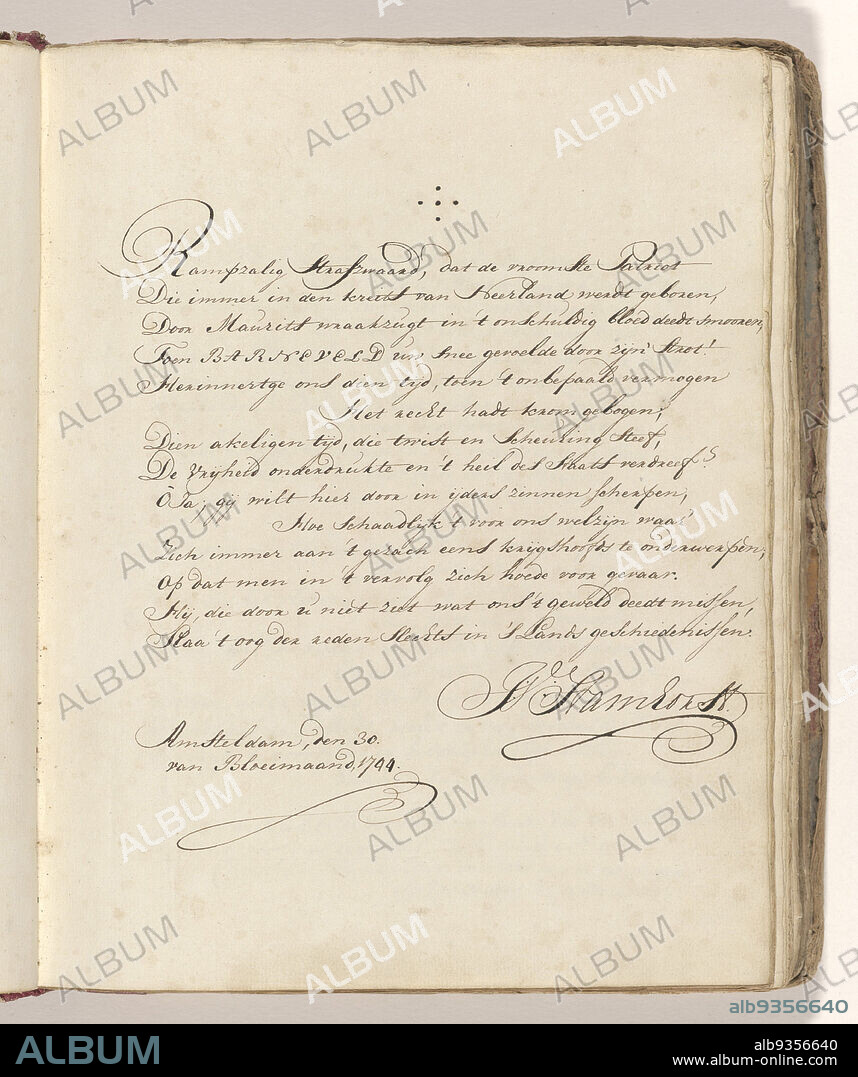 Rampzalig Strafzwaard, dat de vroomste Patriot
Die immer in den kreits van Neerland werdt geboren,
Door Maurits wraakzugt in 't onschuldig bloed deedt smooren,
Toen BARNEVELD uw snee gevoelde door zijn' Strot!
Herinnertge ons dien tijd, toen 't onbepaald vermogen
Het recht hadt krom gebogen;
Dien akeligen tijd, die twist en Scheuring Steef,
De Vrijheid onderdrukte en 't heil des Staats verdreef?
ô Ja; gij wilt hier door in ijders zinnen scherpen,
Hoe Schaadlijk 't voor ons welzijn waar'
Zich immer aan 't gezach eens krijgshoofds te onderwerpen;
Op dat men in 't vervolg zich hoede voor gevaar.
Hij, die door u niet ziet wat ons 't geweld deedt missen,
Slaa 't oog der reden Slechts in 's Lands geschiedenissen.
Amsteldam, den 30.
van Bloeimaand, 1744.
ALBUM
alb9356640
ALBUM
alb9356640
www.album-online.com